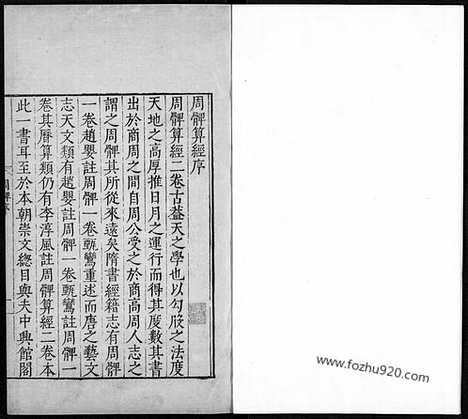 周髀算經序
周髀算經二卷古蓋天之學也以勾股之法度
天地之高厚推日月之運行而得其度數其書
出於商周之間自周公受之於商高周人志之
謂之周髀其所從來遠矣隋書經籍志有周髀
一卷趙嬰註周髀一卷甄鸞重述而唐之藝文
志天文類有趙嬰註周髀一卷甄鸞註周髀一
卷其曆算類仍有李淳風註周髀算經二卷本
此一書耳至於本朝崇文緫目與夫中興館閣
www.fozhu920.com